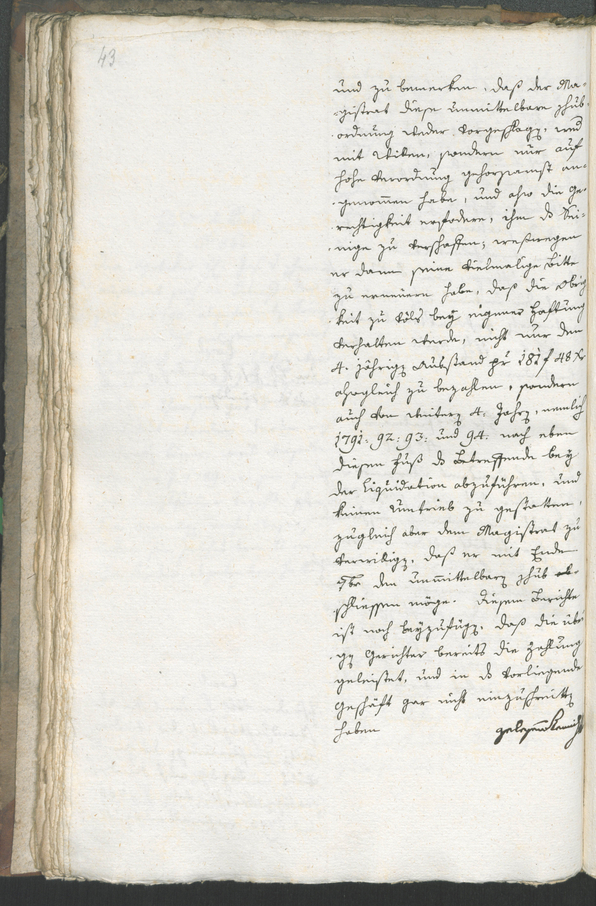 43
und zu bemerken, daß der Ma-
gistrat diese unmittelbare Schub-
ordnung weder vorgeschlagen, noch
mit wirken, sondern nur auf
hohe Verordnung gehorsamst an-
genommen habe, und also die Ge-
rechtigkeit erfodere, ihm das Sei-
nige zu verschaffen; weswegen
er dann seine vielmalige Bitte
zu erneuern habe, daß die Obrig
keit zu Tölz bey eigener Haftung
verhalten werde, nicht nur den
4. jährigen Ausstand pr 181 f 48 Xr
sogleich zu bezahlen, sondern
auch von weitern 4. Jahren, nemlich
1791: 92: 93: und 94: nach eben
diesem Fuß das Betreffende bey
der Liquidation abzuführen, und
keinen Umtrieb zu gestatten,
zugleich aber dem Magistrat zu
bewilligen, daß er mit Ende
den unmittelbaren Schub ab-
schliessen möge. Diesem Berichte
ist noch beyzufügen, daß die übri
gen Gerichter bereits die Zahlung
geleistet, und in das vorliegende
Geschäft gar nicht einzuschreiten
haben